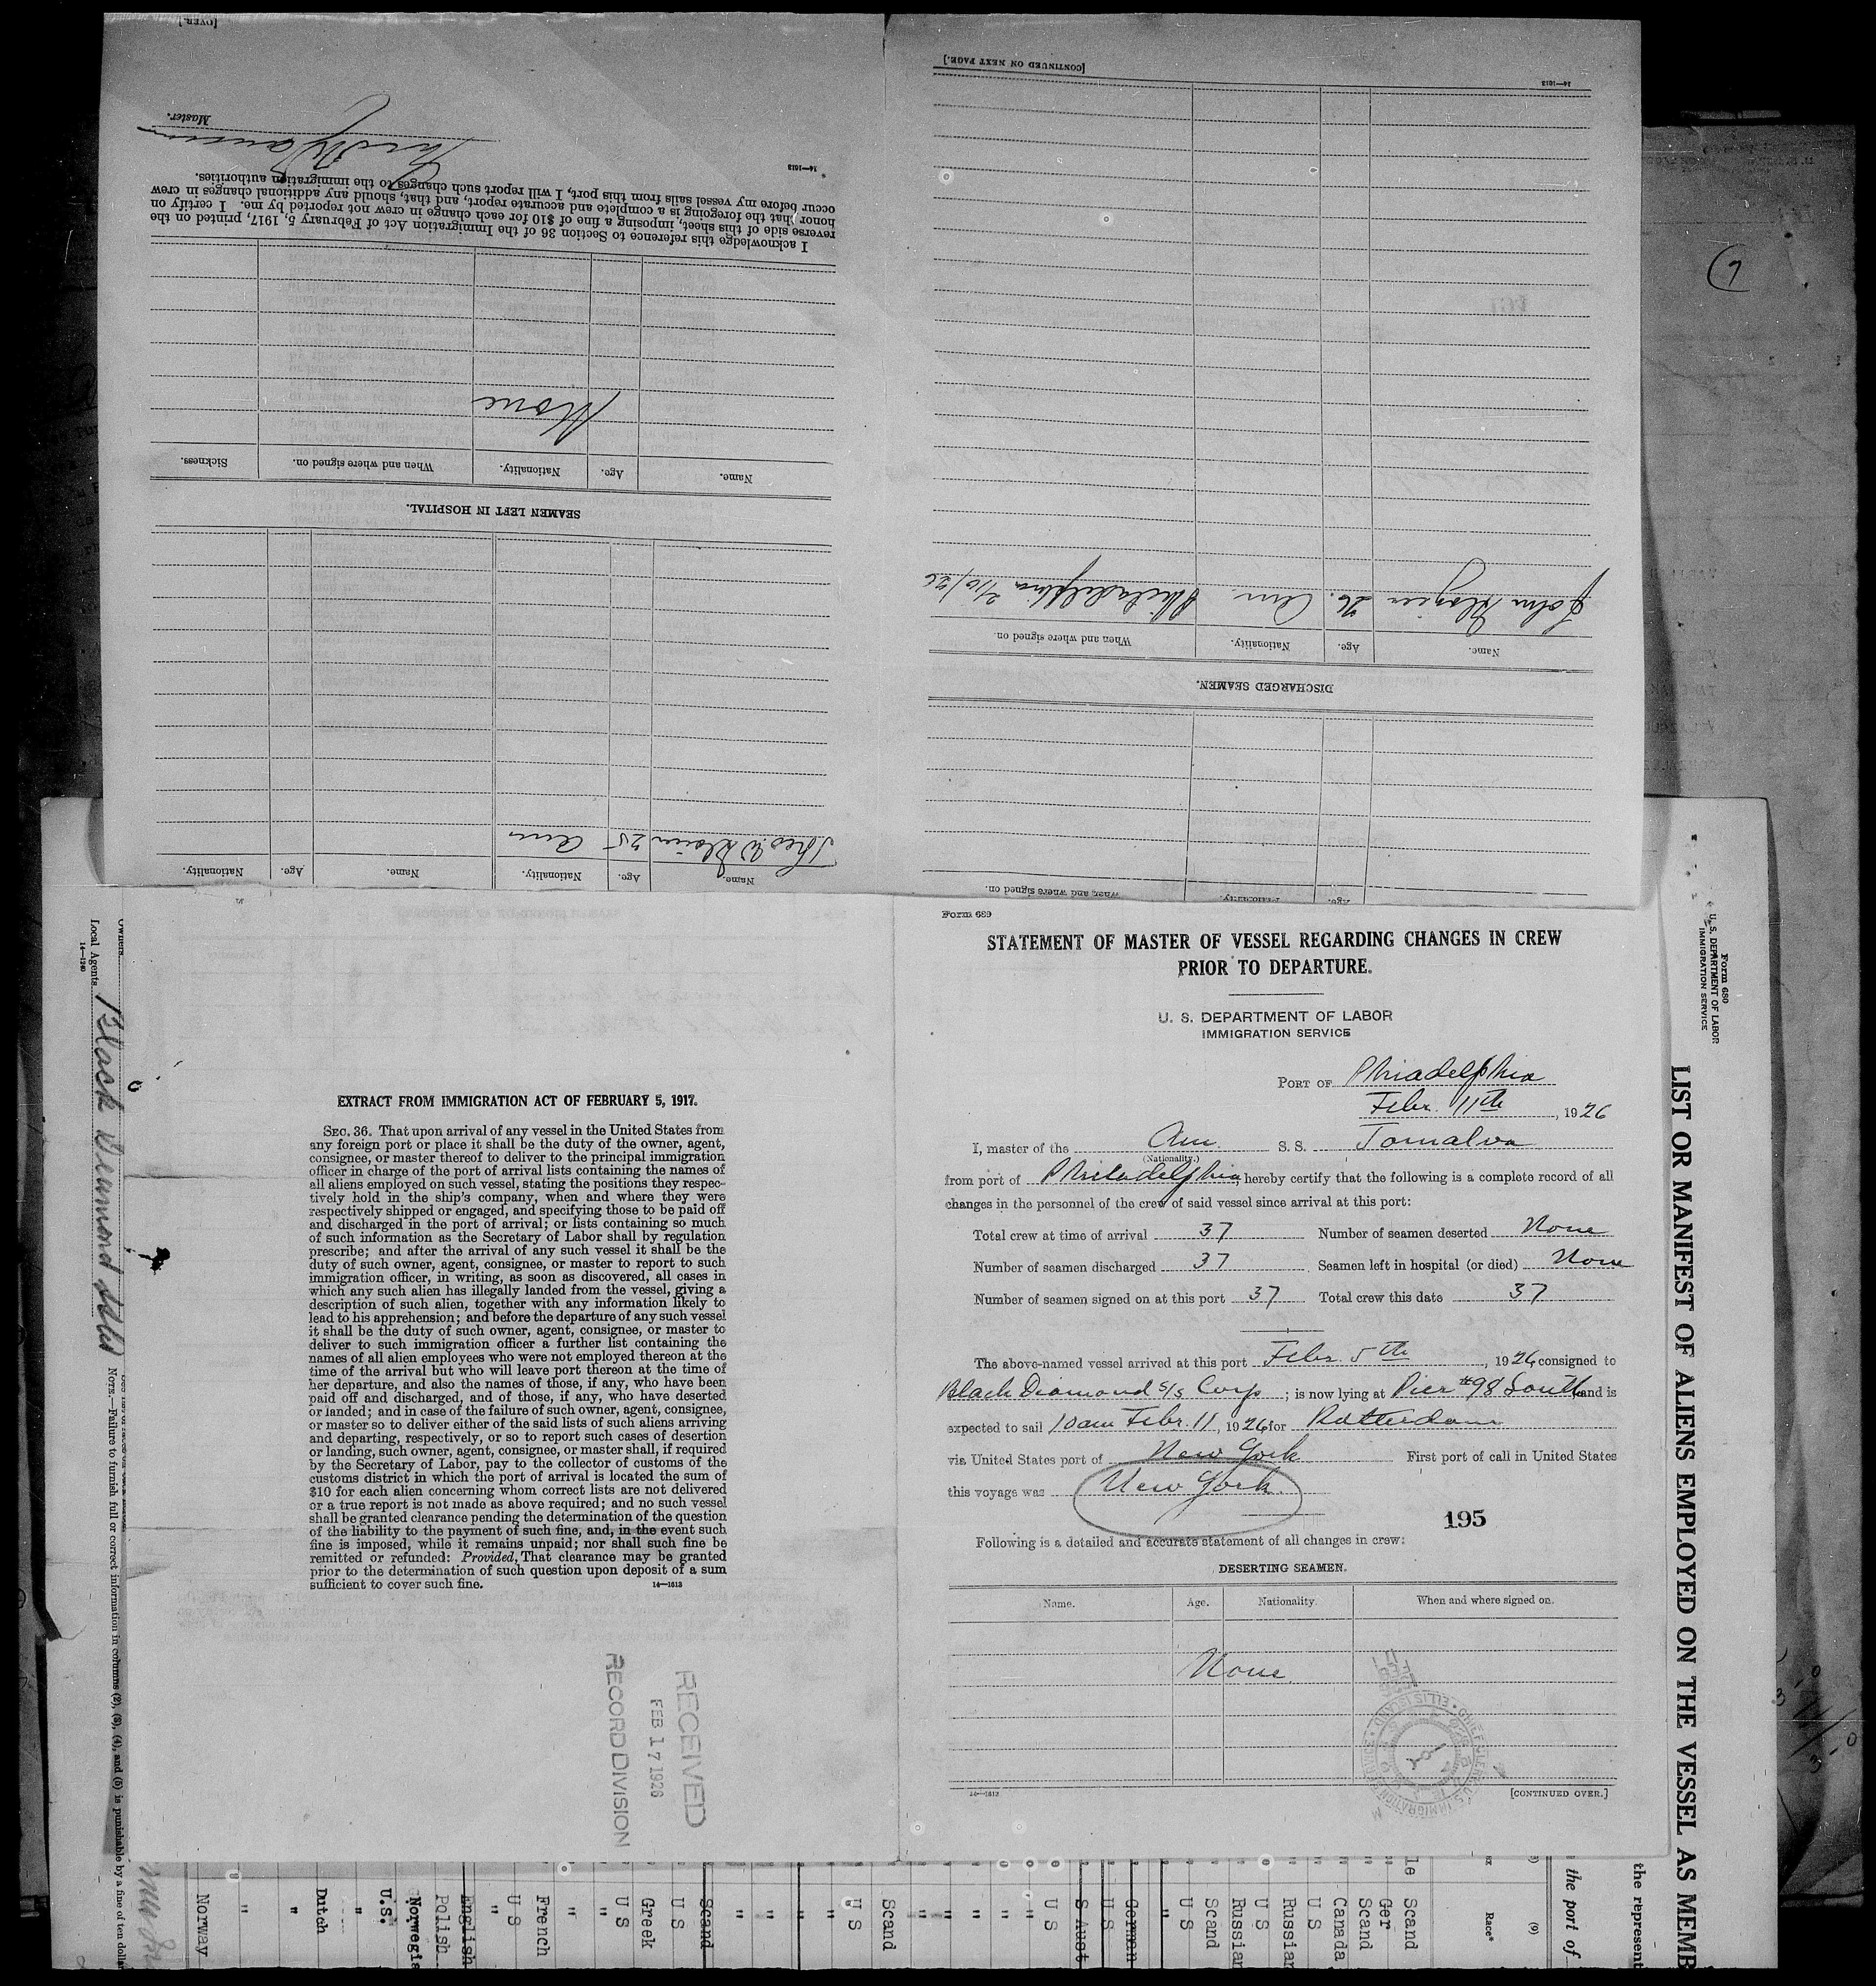 [OVER.]
Master.
14—1613
I acknowledge this reference to Section 36 of the Immigration Act of February 5, 1917, printed on the
reverse side of this sheet, imposing a fine of $10 for each change in crew not reported by me. I certify on
honor that the foregoing is a complete and accurate report, and that, should any additional changes in crew
occur before my vessel sails from this port, I will report such changes to the immigration authorities.
None
Name. Age. Nationality. When and where signed on. Sickness.
SEAMEN LEFT IN HOSPITAL.
25 Am
Name. Age. Nationality. Name. Age. Nationality.
[CONTINUED ON NEXT PAGE.]
14—1613
John 26. Am. Philadelphia 2/10/26
Name. Age. Nationality. When and where signed on.
DISCHARGED SEAMEN.
Age. Nationality. When and where signed on.
7
Form 689
STATEMENT OF MASTER OF VESSEL REGARDING CHANGES IN CREW
PRIOR TO DEPARTURE.
U. S. DEPARTMENT OF LABOR
IMMIGRATION SERVICE
PORT OF Philadelphia
Febr. 11th, 1926
I, master of the Am. S. S. Tomalva
(Nationality.)
from port of Philadelphia hereby certify that the following is a complete record of all
changes in the personnel of the crew of said vessel since arrival at this port:
Total crew at time of arrival 37 Number of seamen deserted None
Number of seamen discharged 37 Seamen left in hospital (or died) None
Number of seamen signed on at this port 37 Total crew this date 37
The above-named vessel arrived at this port Febr. 5th, 1926 consigned to
Black Diamond S/S Corp; is now lying at Pier #98 South and is
expected to sail 10am Febr. 11, 1926 for Rotterdam
via United States port of New York First port of call in United States
this voyage was New York
195
Following is a detailed and accurate statement of all changes in crew:
DESERTING SEAMEN.
Name. Age. Nationality. When and where signed on.
None
14—1613
[CONTINUED OVER.]
EXTRACT FROM IMMIGRATION ACT OF FEBRUARY 5, 1917.
SEC. 36. That upon arrival of any vessel in the United States from
any foreign port or place it shall be the duty of the owner, agent,
consignee, or master thereof to deliver to the principal immigration
officer in charge of the port of arrival lists containing the names of
all aliens employed on such vessel, stating the positions they respec-
tively hold in the ship's company, when and where they were
respectively shipped or engaged, and specifying those to be paid off
and discharged in the port of arrival; or lists containing so much
of such information as the Secretary of Labor shall by regulation
prescribe; and after the arrival of any such vessel it shall be the
duty of such owner, agent, consignee, or master to report to such
immigration officer, in writing, as soon as discovered, all cases in
which any such alien has illegally landed from the vessel, giving a
description of such alien, together with any information likely to
lead to his apprehension; and before the departure of any such vessel
it shall be the duty of such owner, agent, consignee, or master to
deliver to such immigration officer a further list containing the
names of all alien employees who were not employed thereon at the
time of the arrival but who will leave port thereon at the time of
her departure, and also the names of those, if any, who have been
paid off and discharged, and of those, if any, who have deserted
or landed; and in case of the failure of such owner, agent, consignee,
or master so to deliver either of the said lists of such aliens arriving
and departing, respectively, or so to report such cases of desertion
or landing, such owner, agent, consignee, or master shall, if required
by the Secretary of Labor, pay to the collector of customs of the
customs district in which the port of arrival is located the sum of
$10 for each alien concerning whom correct lists are not delivered
or a true report is not made as above required; and no such vessel
shall be granted clearance pending the determination of the question
of the liability to the payment of such fine, and, in the event such
fine is imposed, while it remains unpaid; nor shall such fine be
remitted or refunded: Provided, That clearance may be granted
prior to the determination of such question upon deposit of a sum
sufficient to cover such fine.
14—1613
RECEIVED
FEB 17 1926
RECORD DIVISION
Form 680
U. S. DEPARTMENT OF LABOR
IMMIGRATION SERVICE
LIST OR MANIFEST OF ALIENS EMPLOYED ON THE VESSEL AS MEMB
the represent
the port of
(9)
Race*
Scand
Ger
Scand
Canada
U S
Russian
U S
Russian
Scand
U S
"
German
U S
S Aust
U S
"
"
"
"
"
Scand
U S
"
"
"
"
Scand
U S
Greek
U S
"
"
French
U S
"
English
Polish
Norwegia
U.S.
"
Dutch
"
"
Norway
Owners
Local Agents Black Diamond
14—1240
NOTE.—Failure to furnish full or correct information in columns (2), (3), (4), and (5) is punishable by a fine of ten dollar